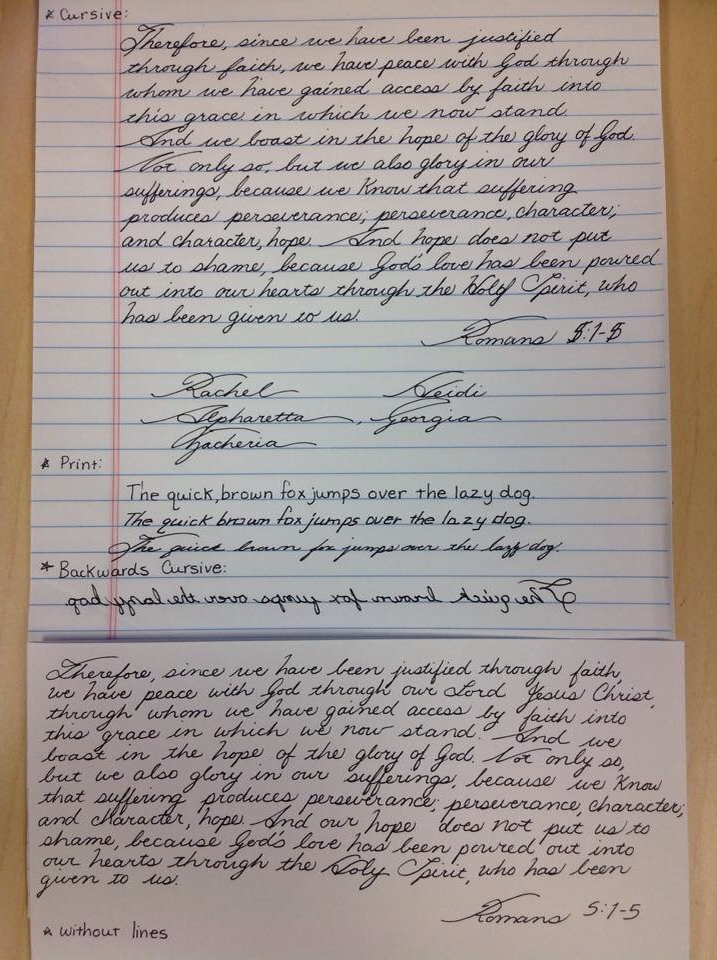 * Cursive:
Therefore, since we have been justified
through faith, we have peace with God through
whom we have gained access by faith into
this grace in which we now stand.
And we boast in the hope of the glory of God.
Not only so, but we also glory in our
sufferings, because we Know that suffering
produces perseverance; perseverance, character;
and character, hope. And hope does not put
us to shame, because God's love has been poured
out into our hearts through the Holy Spirit, who
has been given to us.
Romans 5:1-5
Rachel Heidi
Alpharetta, Georgia
Zacheria
* Print:
The quick, brown fox jumps over the lazy dog.
The quick brown fox jumps over the lazy dog.
The quick brown fox jumps over the lazy dog.
* Backwards Cursive:
The quick brown fox jumps over the lazy dog
Therefore, since we have been justified through faith,
we have peace with God through our Lord Jesus Christ,
through whom we have gained access by faith into
this grace in which we now stand. And we
boast in the hope of the glory of God. Not only so,
but we also glory in our sufferings, because we Know
that suffering produces perseverance; perseverance, character;
and character, hope. And our hope does not put us to
shame, because God's love has been poured out into
our hearts through the Holy Spirit, who has been
given to us.
Romans 5:1-5
* without lines